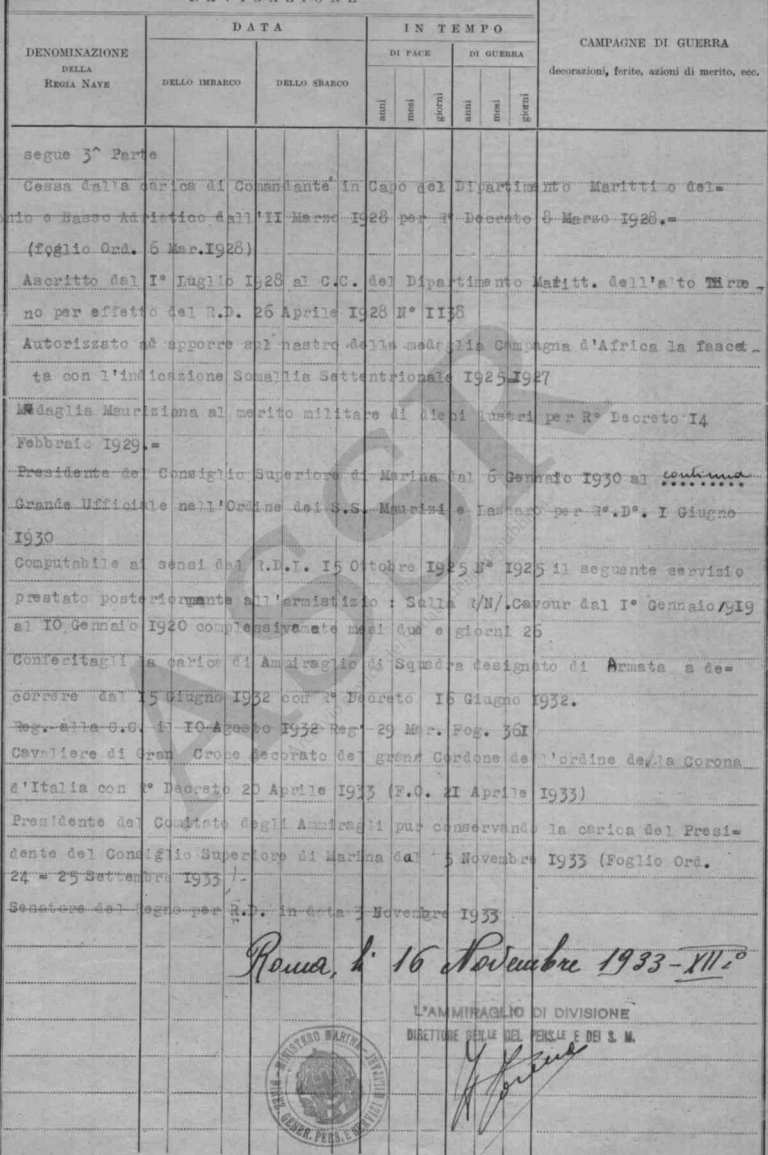 NAVIGAZIONE
DENOMINAZIONE
DELLA
REGIA NAVE
DATA
DELLO IMBARCO
DELLO SBARCO
IN TEMPO
DI PACE
DI GUERRA
anni
mesi
giorni
anni
mesi
giorni
CAMPAGNE DI GUERRA
decorazioni, ferite, azioni di merito, ecc.
segue 3^ Parte
Cessa dalla carica di Comandante in Capo del Dipartimento Marittimo del=
nio e Basso Adriatico dall'II Marzo 1928 per R° Decreto 8 Marzo 1928.=
(foglio Ord. 6 Mar.I928)
Ascritto dal I° Luglio I928 al C.C. del Dipartimento Maritt. dell'alto Tirre-
no per effetto del R.D. 26 Aprile I928 N° II38
Autorizzato ad apporre sul nastro della medaglia Campagna d'Africa la fascet-
ta con l'indicazione Somallia Settentrionale I925-I927
Medaglia Mauriziana al merito militare di dieci lustri per R° Decreto I4
Febbraio I929.=
Presidente del Consiglio Superiore di Marina dal 6 Gennaio I930 al continua
Grande Ufficiale nell'Ordine dei S.S. Maurizi e Lazzaro per R°.D°. I Giugno
I930
Computabile ai sensi del R.D.L. I5 Ottobre I925 N° I925 il seguente servizio
prestato posteriormente all'armistizio : Sulla R/N/.Cavour dal I° Gennaio 1919
al I0 Gennaio I920 complessivamete mesi due e giorni 26
Conferitagli la carica di Ammiraglio di Squadra designato di Armata a de=
correre dal I5 Giugno I932 con R° Decreto I6 Giugno I932.
Reg. alla C.C. il I0 Agosto I932 Reg° 29 Mar. Fog. 36I
Cavaliere di Gran Croce decorato del grand Cordone dell'ordine della Corona
d'Italia con R° Decreto 20 Aprile I933 (F.O. 2I Aprile I933)
Presidente del Comitato degli Ammiragli pur conservando la carica del Presi=
dente del Consiglio Superiore di Marina dal 5 Novembre I933 (Foglio Ord.
24 = 25 Settembre I933 /-
Senatore del Regno per R.D. in data 3 Novembre I933
Roma, li 16 Novembre 1933-XII°
L'AMMIRAGLIO DI DIVISIONE
DIRETTORE GEN.LE DEL PERS.LE E DEI S. M.
MINISTERO MARINA
DIREZ. GENER. PERS. E SERVIZI MILITARI
ASSR